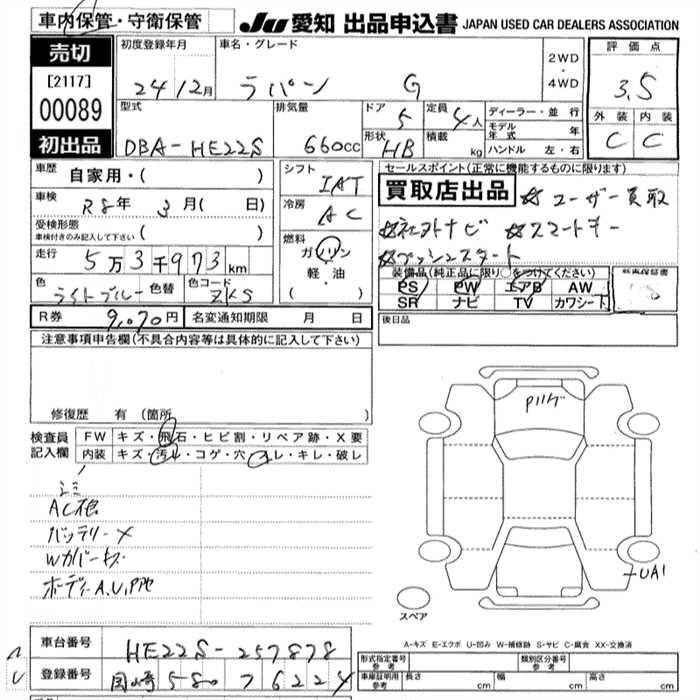 車内保管・守衛保管
JU 愛知 出品申込書 JAPAN USED CAR DEALERS ASSOCIATION
売切
[2117]
00089
初出品
初度登録年月 車名・グレード 2WD・4WD 評価点
24 12月 ラパン G 3.5
型式 排気量 ドア 5 定員 4人 ディーラー・並行
モデル年式 年
外装 内装
DBA-HE22S 660cc 形状 HB 積載 kg ハンドル 左・右 C C
車歴 自家用・( )
シフト IAT
セールスポイント(正常に機能するものに限ります)
買取店出品 ☆ユーザー買取
車検 R8年 3月( 日)
冷房 AC
☆社外ナビ ☆スマートキー
☆プッシュスタート
受検形態
車検付きのみ記入して下さい ( )
走行 5万3千973km
燃料 ガソリン
軽・油
( )
色 ライトブルー 色替 色コード ZKS
装備品(純正品に限り○をつけてください)
PS PW エアB AW
SR ナビ TV カワシート
R券 9,070円 名変通知期限 月 日
後日品
注意事項申告欄(不具合内容等は具体的に記入して下さい)
修復歴 有(箇所 )
検査員記入欄 FW キズ・飛石・ヒビ割・リペア跡・X要
内装 キズ・汚レ・コゲ・穴・スレ・キレ・破レ
シミ
バッテリーX
ボディーA.U.
UA1
スペア
A-キズ E-エクボ U-凹み W-補修跡 S-サビ C-腐食 XX-交換済
車台番号 HE22S-257878
登録番号 岡崎 580 フ 6224
形式指定番号 参考 類別区分番号 参考
車庫証明用 参考 長さ cm 幅 cm 高さ cm